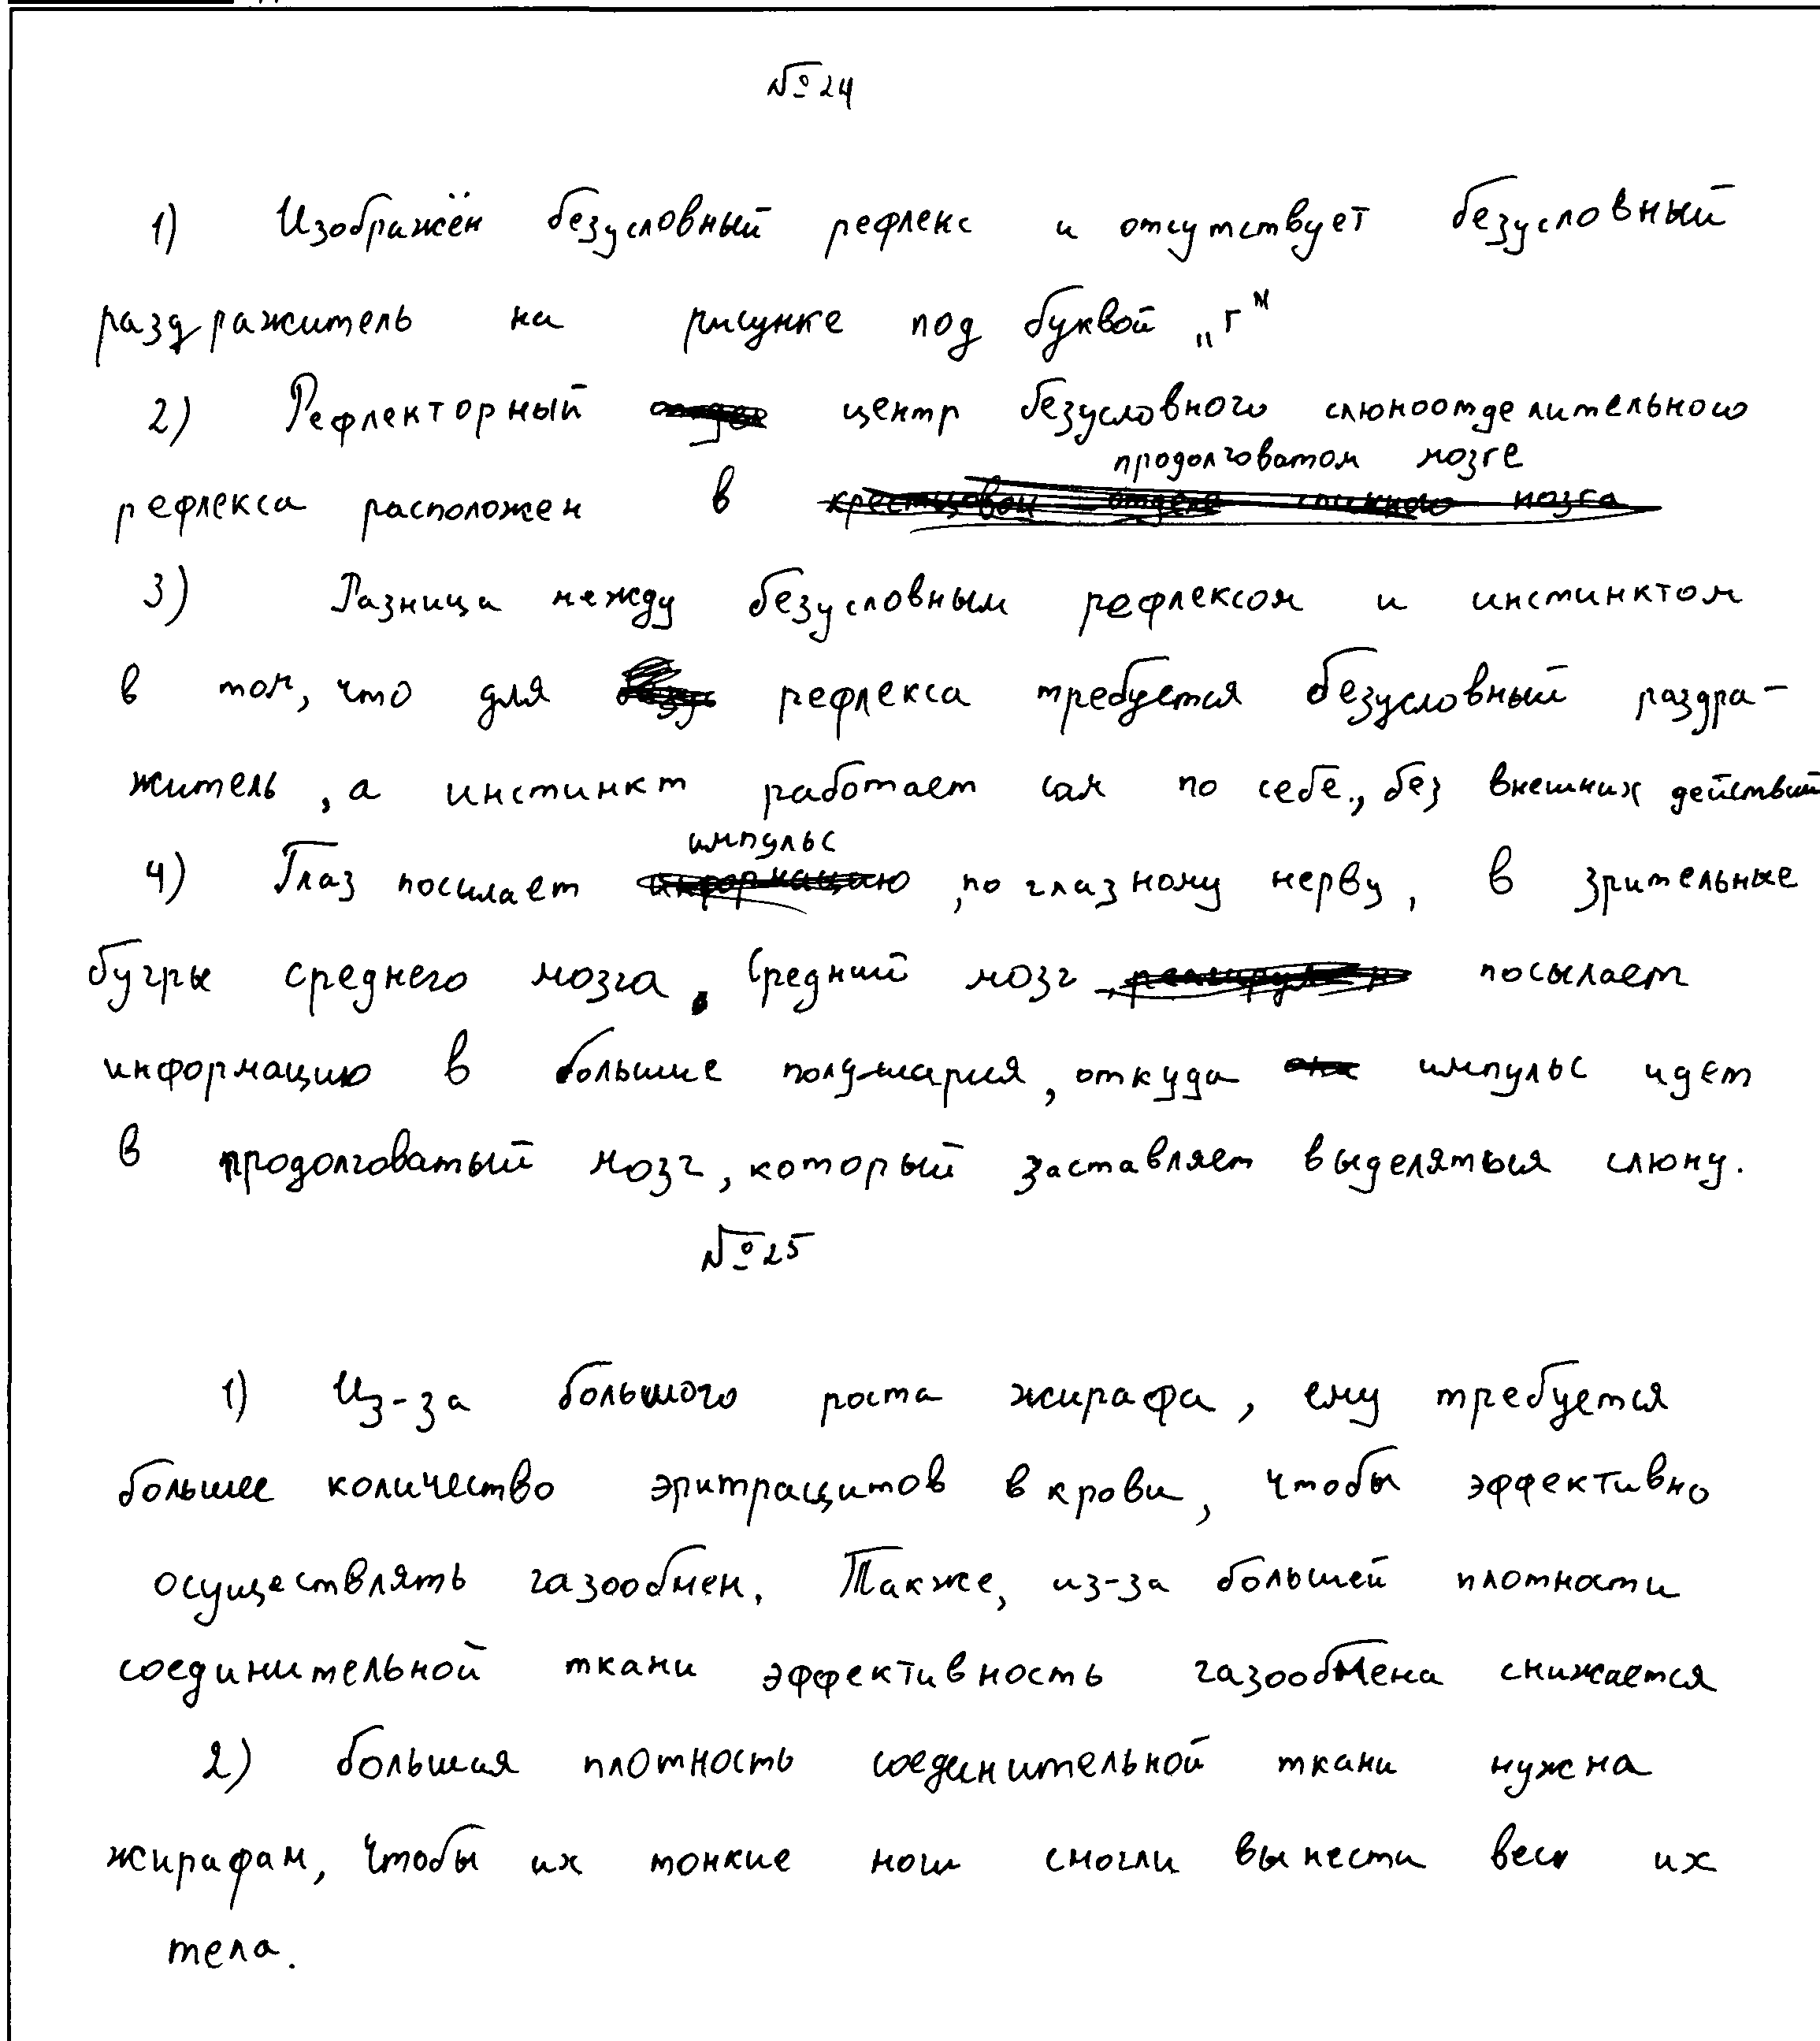 № 24
1) Изображён безусловный рефлекс и отсутствует безусловный
раздражитель на рисунке под буквой „г"
2) Рефлекторный центр безусловного слюноотделительного
продолговатом мозге
рефлекса расположен в крестцовом отделе спинного мозга
3) Разница между безусловным рефлексом и инстинктом
в том, что для рефлекса требуется безусловный раздра-
житель, а инстинкт работает сам по себе, без внешних действий
импульс
4) Глаз посылает информацию, по глазному нерву, в зрительные
бугры среднего мозга. Средний мозг посылает
информацию в большие полушария, откуда она импульс идет
в продолговатый мозг, который заставляет выделяться слюну.
№ 25
1) Из-за большого роста жирафа, ему требуется
большее количество эритрацитов в крови, чтобы эффективно
осуществлять газообмен. Также, из-за большей плотности
соединительной ткани эффективность газообмена снижается
2) большая плотность соединительной ткани нужна
жирафам, чтобы их тонкие ноги смогли вынести вес их
тела.